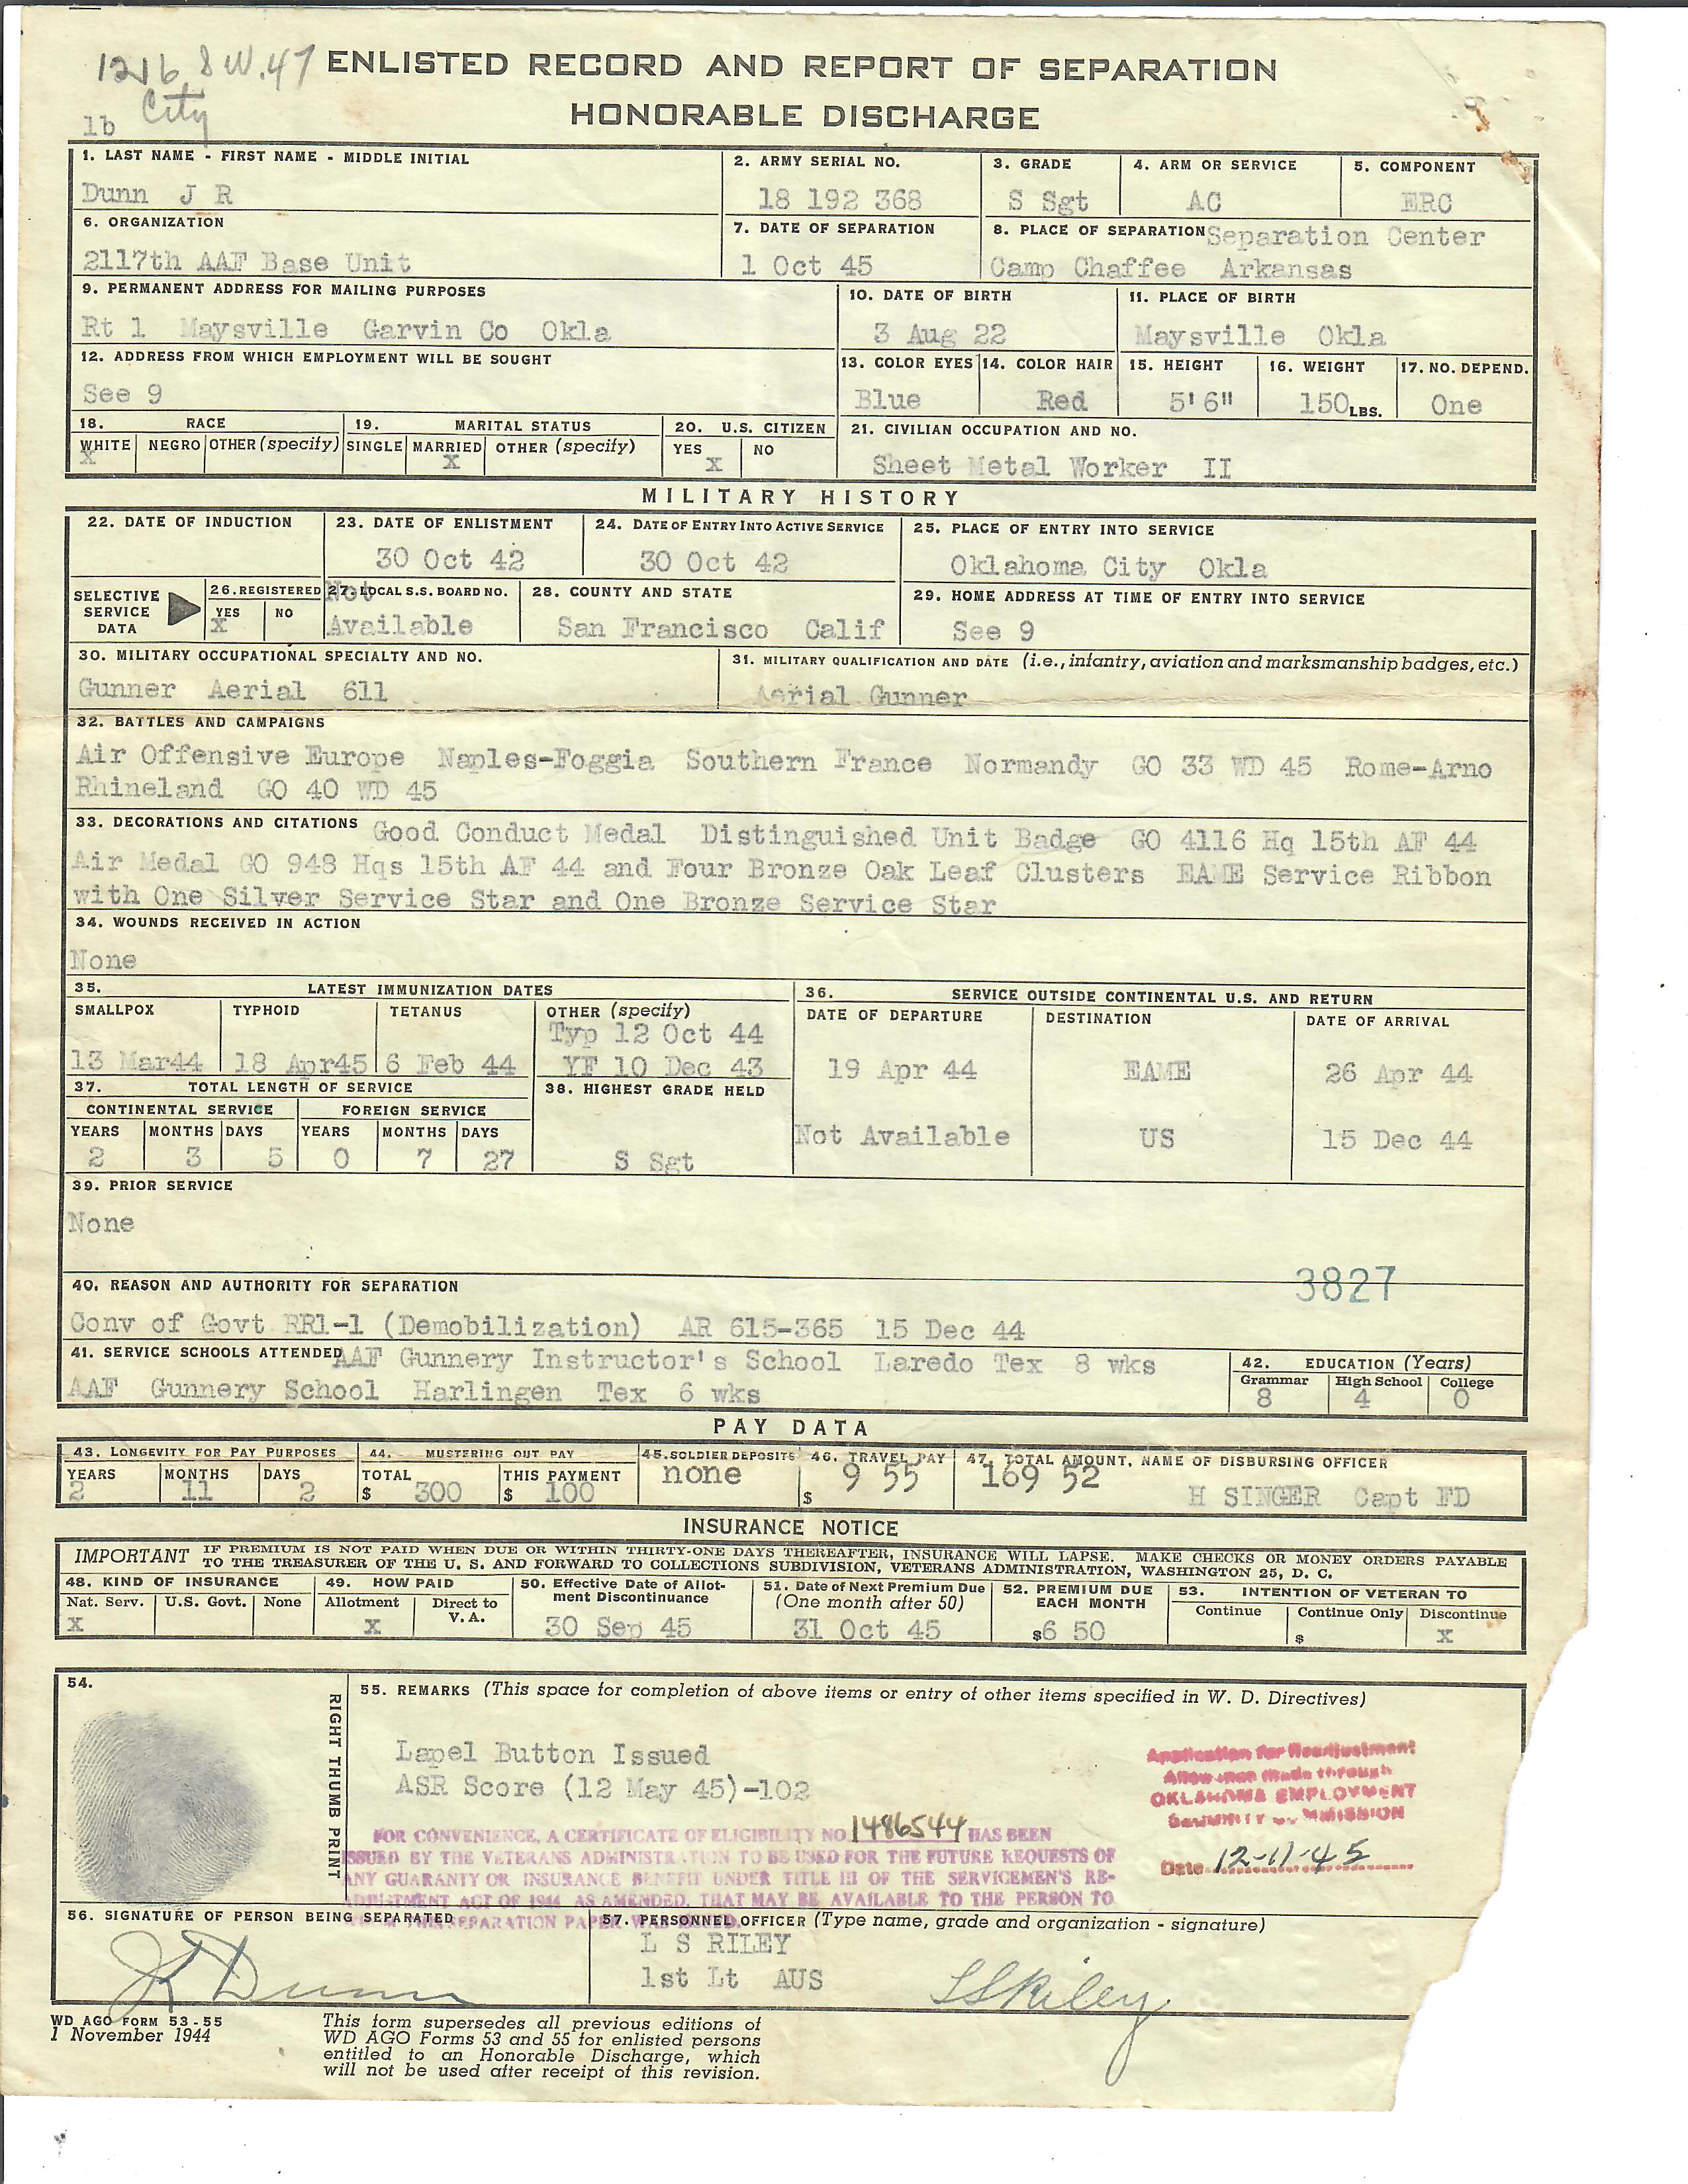 1216 S W. 47
City
1b
ENLISTED RECORD AND REPORT OF SEPARATION
HONORABLE DISCHARGE
1. LAST NAME - FIRST NAME - MIDDLE INITIAL 2. ARMY SERIAL NO. 3. GRADE 4. ARM OR SERVICE 5. COMPONENT
Dunn J R 18 192 368 S Sgt AC ERC
6. ORGANIZATION 7. DATE OF SEPARATION 8. PLACE OF SEPARATION Separation Center
2117th AAF Base Unit 1 Oct 45 Camp Chaffee Arkansas
9. PERMANENT ADDRESS FOR MAILING PURPOSES 10. DATE OF BIRTH 11. PLACE OF BIRTH
Rt 1 Maysville Garvin Co Okla 3 Aug 22 Maysville Okla
12. ADDRESS FROM WHICH EMPLOYMENT WILL BE SOUGHT 13. COLOR EYES 14. COLOR HAIR 15. HEIGHT 16. WEIGHT 17. NO. DEPEND.
See 9 Blue Red 5'6" 150 LBS. One
18. RACE 19. MARITAL STATUS 20. U.S. CITIZEN 21. CIVILIAN OCCUPATION AND NO.
WHITE NEGRO OTHER (specify) SINGLE MARRIED OTHER (specify) YES NO
X X X Sheet Metal Worker II
MILITARY HISTORY
22. DATE OF INDUCTION 23. DATE OF ENLISTMENT 24. DATE OF ENTRY INTO ACTIVE SERVICE 25. PLACE OF ENTRY INTO SERVICE
30 Oct 42 30 Oct 42 Oklahoma City Okla
SELECTIVE SERVICE DATA 26. REGISTERED 27. LOCAL S.S. BOARD NO. 28. COUNTY AND STATE 29. HOME ADDRESS AT TIME OF ENTRY INTO SERVICE
YES NO Not
X Available San Francisco Calif See 9
30. MILITARY OCCUPATIONAL SPECIALTY AND NO. 31. MILITARY QUALIFICATION AND DATE (i.e., infantry, aviation and marksmanship badges, etc.)
Gunner Aerial 611 Aerial Gunner
32. BATTLES AND CAMPAIGNS
Air Offensive Europe Naples-Foggia Southern France Normandy GO 33 WD 45 Rome-Arno
Rhineland GO 40 WD 45
33. DECORATIONS AND CITATIONS Good Conduct Medal Distinguished Unit Badge GO 4116 Hq 15th AF 44
Air Medal GO 948 Hqs 15th AF 44 and Four Bronze Oak Leaf Clusters EAME Service Ribbon
with One Silver Service Star and One Bronze Service Star
34. WOUNDS RECEIVED IN ACTION
None
35. LATEST IMMUNIZATION DATES 36. SERVICE OUTSIDE CONTINENTAL U.S. AND RETURN
SMALLPOX TYPHOID TETANUS OTHER (specify) DATE OF DEPARTURE DESTINATION DATE OF ARRIVAL
Typ 12 Oct 44
13 Mar44 18 Apr45 6 Feb 44 YF 10 Dec 43 19 Apr 44 EAME 26 Apr 44
37. TOTAL LENGTH OF SERVICE 38. HIGHEST GRADE HELD
CONTINENTAL SERVICE FOREIGN SERVICE
YEARS MONTHS DAYS YEARS MONTHS DAYS Not Available US 15 Dec 44
2 3 5 0 7 27 S Sgt
39. PRIOR SERVICE
None
3827
40. REASON AND AUTHORITY FOR SEPARATION
Conv of Govt RR1-1 (Demobilization) AR 615-365 15 Dec 44
41. SERVICE SCHOOLS ATTENDED AAF Gunnery Instructor's School Laredo Tex 8 wks 42. EDUCATION (Years)
Grammar High School College
AAF Gunnery School Harlingen Tex 6 wks 8 4 0
PAY DATA
43. LONGEVITY FOR PAY PURPOSES 44. MUSTERING OUT PAY 45. SOLDIER DEPOSITS 46. TRAVEL PAY 47. TOTAL AMOUNT, NAME OF DISBURSING OFFICER
YEARS MONTHS DAYS TOTAL THIS PAYMENT none 9 55 169 52
2 11 2 $ 300 $ 100 $ H SINGER Capt FD
INSURANCE NOTICE
IMPORTANT IF PREMIUM IS NOT PAID WHEN DUE OR WITHIN THIRTY-ONE DAYS THEREAFTER, INSURANCE WILL LAPSE. MAKE CHECKS OR MONEY ORDERS PAYABLE
TO THE TREASURER OF THE U. S. AND FORWARD TO COLLECTIONS SUBDIVISION, VETERANS ADMINISTRATION, WASHINGTON 25, D. C.
48. KIND OF INSURANCE 49. HOW PAID 50. Effective Date of Allotment Discontinuance 51. Date of Next Premium Due (One month after 50) 52. PREMIUM DUE EACH MONTH 53. INTENTION OF VETERAN TO
Nat. Serv. U.S. Govt. None Allotment Direct to V. A. Continue Continue Only Discontinue
X X 30 Sep 45 31 Oct 45 $6 50 $ X
54. RIGHT THUMB PRINT
55. REMARKS (This space for completion of above items or entry of other items specified in W. D. Directives)
Lapel Button Issued
ASR Score (12 May 45)-102
Application for Readjustment
Allowance made through
OKLAHOMA EMPLOYMENT
SECURITY COMMISSION
Date 12-11-45
FOR CONVENIENCE, A CERTIFICATE OF ELIGIBILITY NO 1486544 HAS BEEN
ISSUED BY THE VETERANS ADMINISTRATION TO BE USED FOR THE FUTURE REQUESTS OF
ANY GUARANTY OR INSURANCE BENEFIT UNDER TITLE III OF THE SERVICEMEN'S RE-
ADJUSTMENT ACT OF 1944 AS AMENDED, THAT MAY BE AVAILABLE TO THE PERSON TO
SEPARATION PAPER WAS ISSUED.
56. SIGNATURE OF PERSON BEING SEPARATED 57. PERSONNEL OFFICER (Type name, grade and organization - signature)
L S RILEY
1st Lt AUS
J R Dunn L S Riley
WD AGO FORM 53-55
1 November 1944
This form supersedes all previous editions of
WD AGO Forms 53 and 55 for enlisted persons
entitled to an Honorable Discharge, which
will not be used after receipt of this revision.